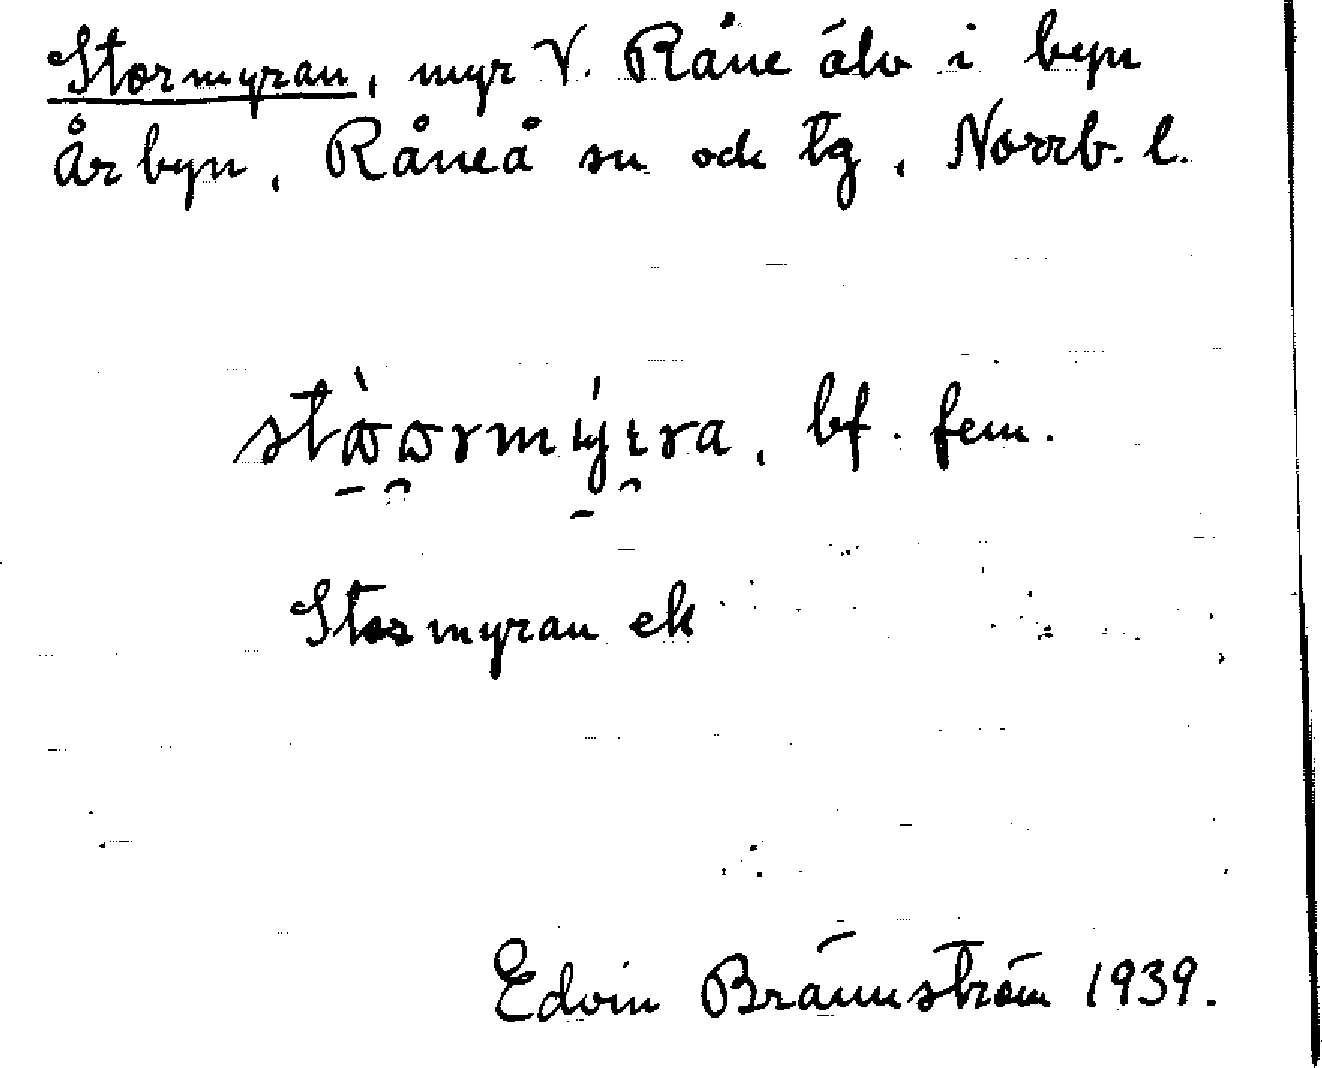 Stormyran, myr V. Råne älv i byn
Årbyn, Råneå sn och tg, Norrb. l.
bf. fem.
Stormyran ek
Edvin Brännström 1939.